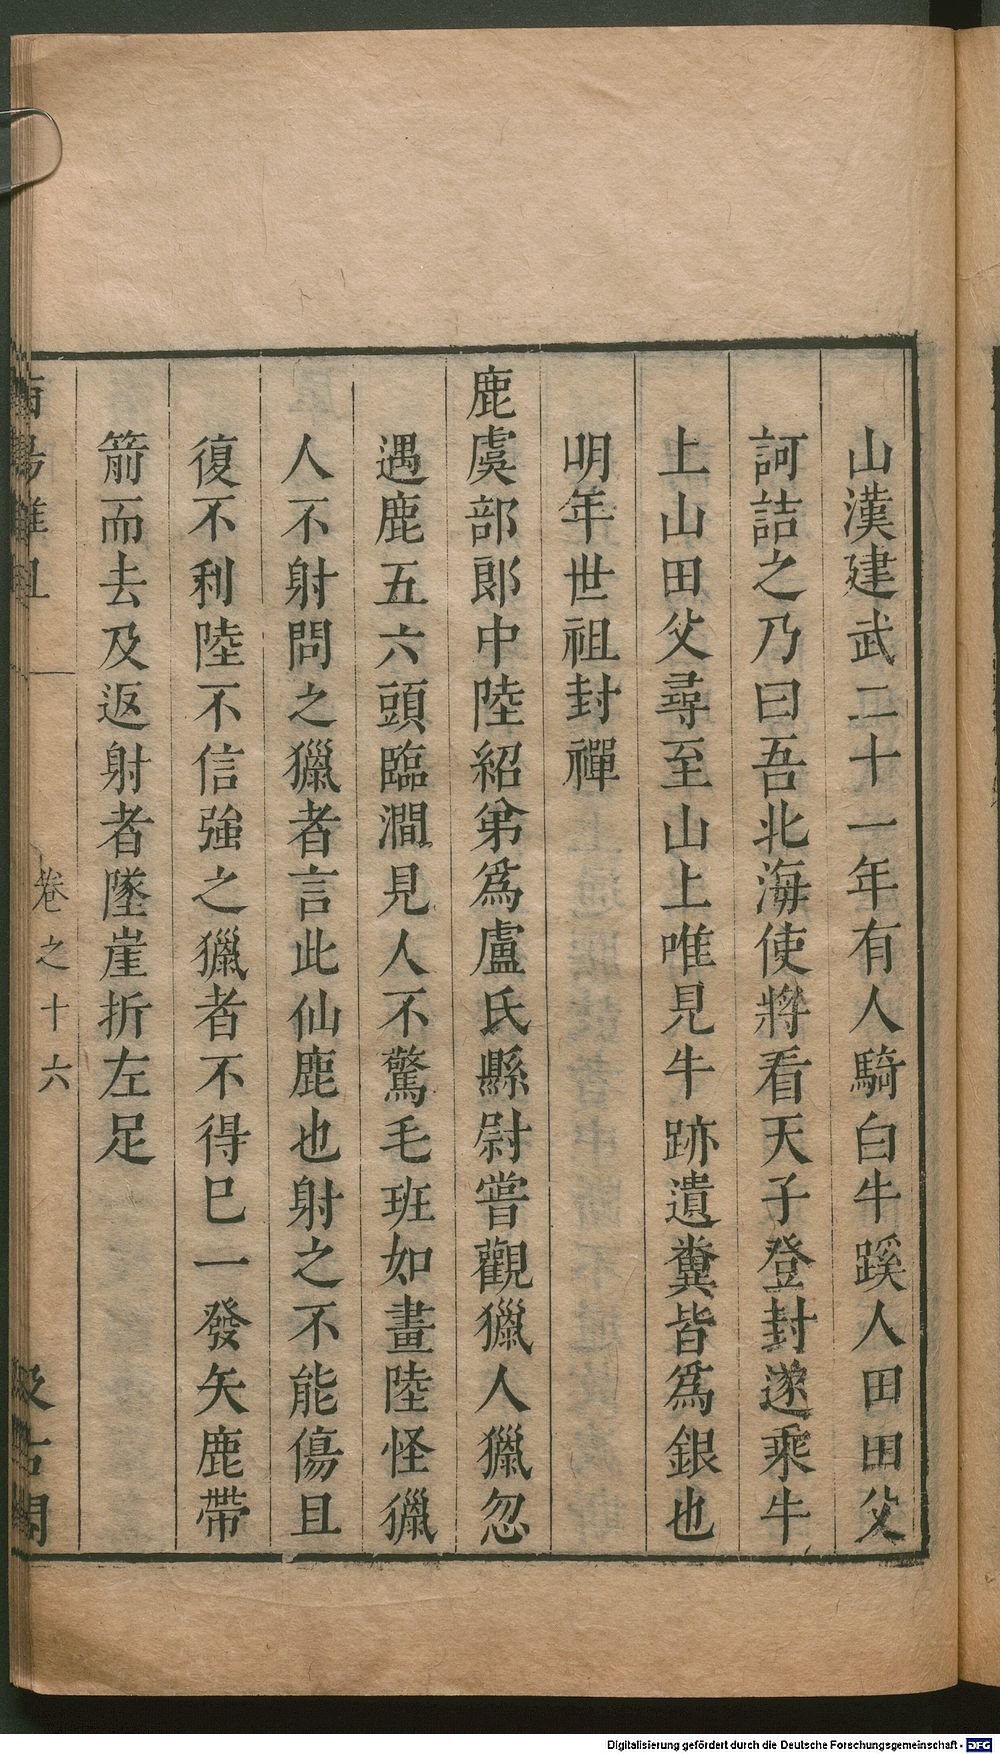 山漢建武二十一年有人騎白牛蹊人田田父
訶詰之乃曰吾北海使將看天子登封遂乘牛
上山田父尋至山上唯見牛跡遺糞皆爲銀也
明年世祖封禪
鹿虞部郎中陸紹弟爲盧氏縣尉嘗觀獵人獵忽
遇鹿五六頭臨澗見人不驚毛班如畫陸怪獵
人不射問之獵者言此仙鹿也射之不能傷且
復不利陸不信強之獵者不得巳一發矢鹿帶
箭而去及返射者墜崖折左足
卷之十六
Digitalisierung gefördert durch die Deutsche Forschungsgemeinschaft - DFG